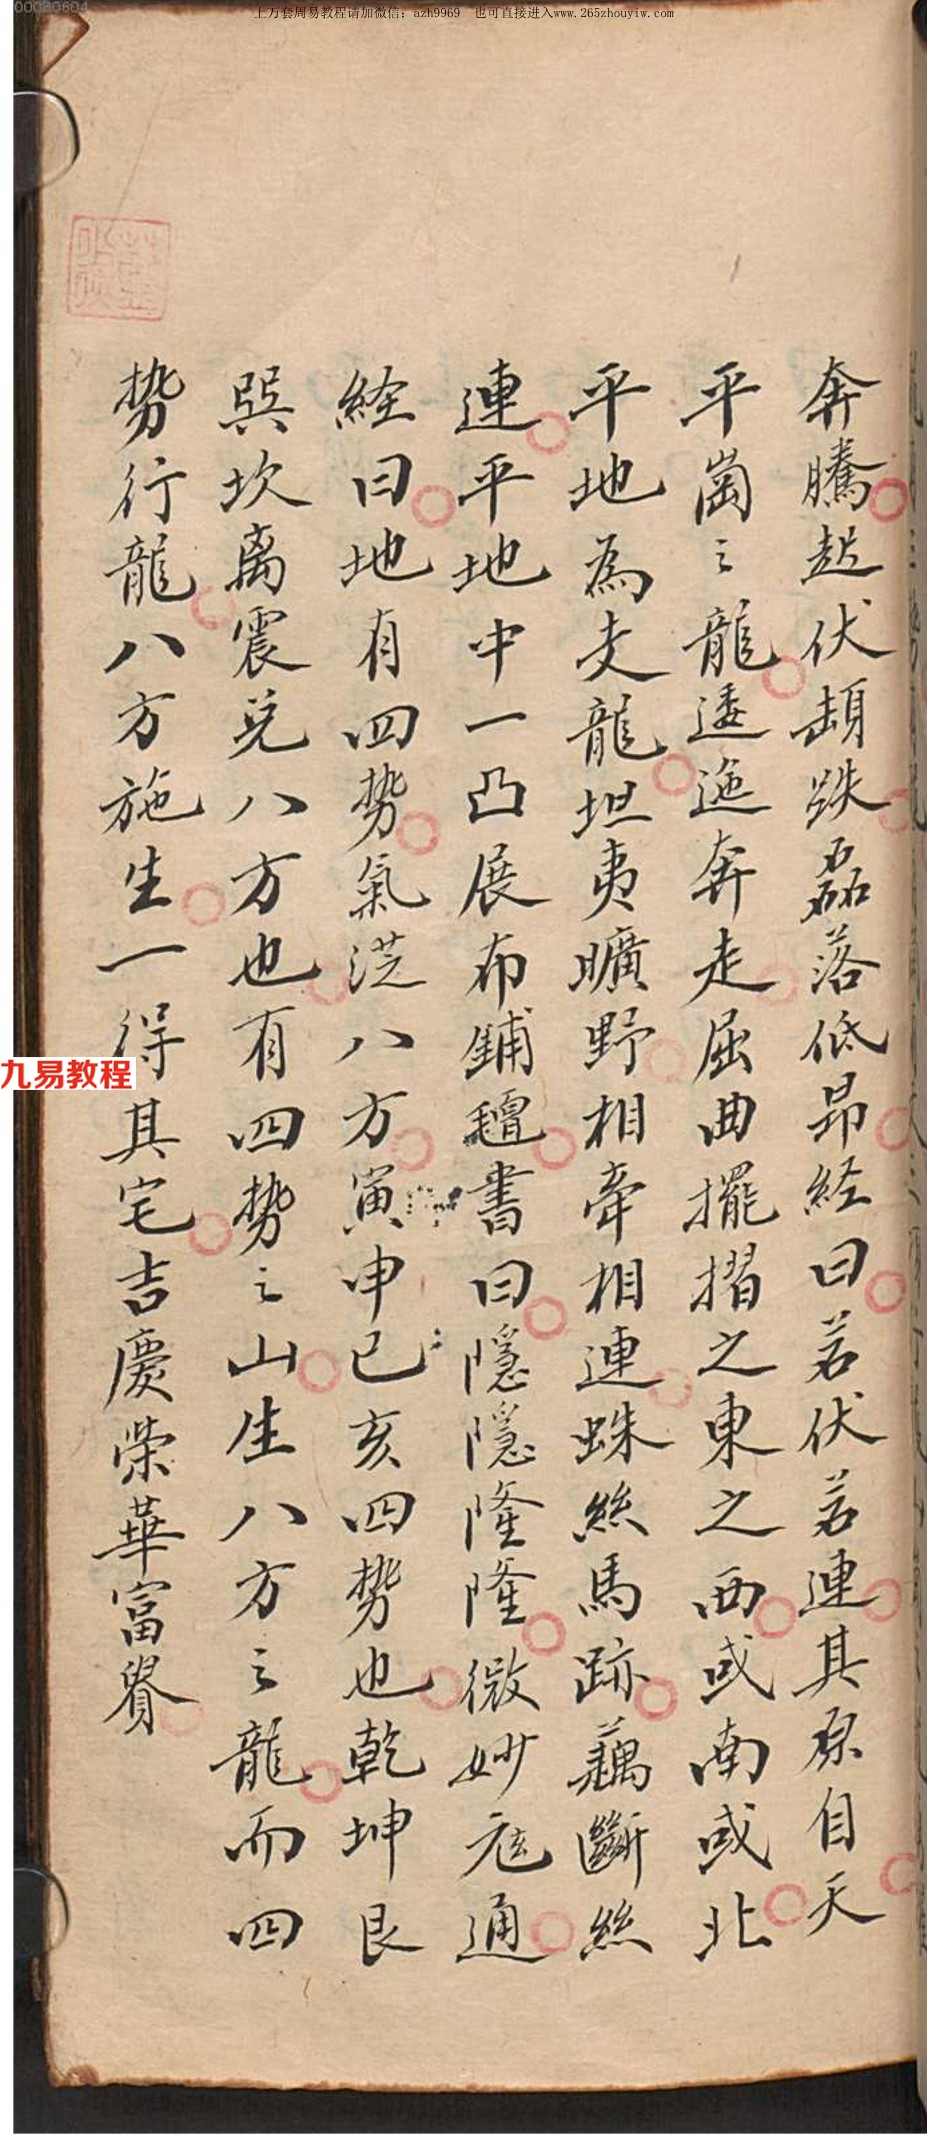 00080604
上万套周易教程请加微信：azh9969 也可直接进入www.265zhouyiw.com
奔騰起伏頡跌磊落低昂经曰若伏若連其原自天
平崗之龍逶迤奔走屈曲擺摺之東之西或南或北
平地為支龍坦夷曠野相牽相連蛛絲馬跡藕斷絲
連平地中一凸展布鋪氊書曰隱隱隆隆微妙玄通
経曰地有四势氣從八方寅申巳亥四势也乾坤艮
巽坎离震兑八方也有四势之山生八方之龍而四
势行龍八方施生一得其宅吉慶荣華富貴
九易教程